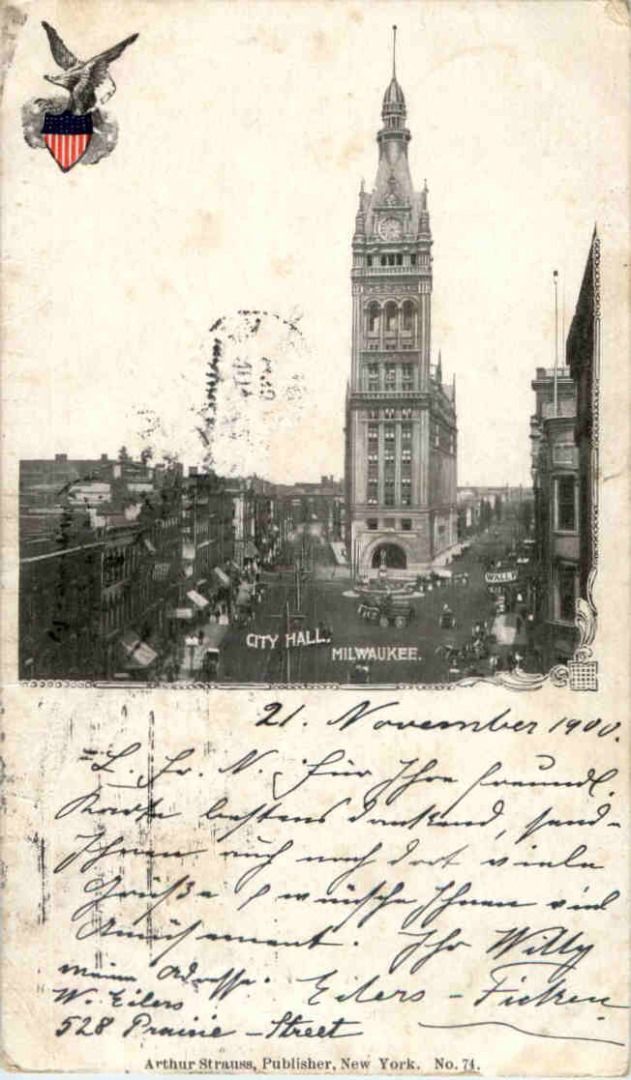 WALL P
CITY HALL.
MILWAUKEE.
21. November 1900.
L. Fr. N. für Ihre freundl.
Karte bestens dankend, send-
Ihnen auch nach dort viele
Grüße & wünsche Ihnen viel
Amüsement. Ihr Willy
Eilers - Ficken
meine Adresse.
W. Eilers
528 Prairie - Street
Arthur Strauss, Publisher, New York. No. 74.